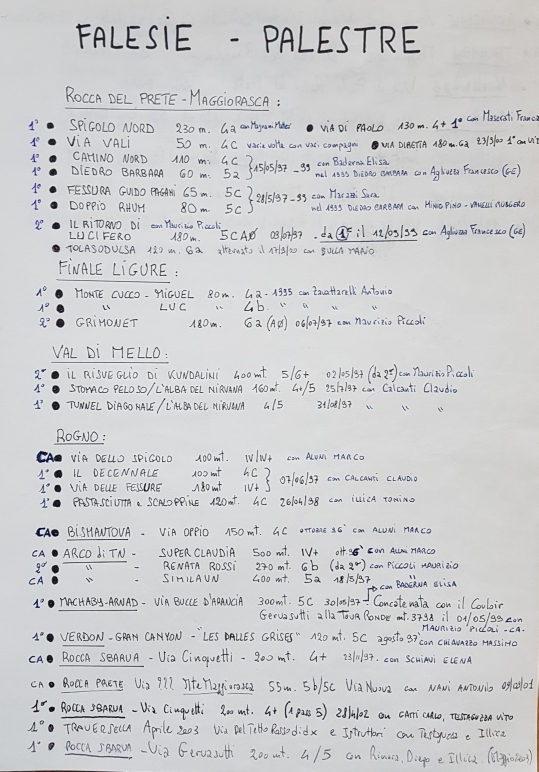 FALESIE - PALESTRE
ROCCA DEL PRETE - MAGGIORASCA :
1° ● SPIGOLO NORD 230 m. 4a con Magnani Matteo ● VIA DI PAOLO 130 m. 4+ 1° con Maserati Franca
1° ● VIA VALI 50 m. 4C varie volte con vari compagni ● VIA DIRETTA 180 m. 6a 23/9/00 1° con
1° ● CAMINO NORD 110 m. 4C } 15/05/97 _ 99 con Baderna Elisa
1° ● DIEDRO BARBARA 60 m. 5a nel 1999 DIEDRO BARBARA con Agliuzza Francesco (GE)
1° ● FESSURA GUIDO PAGANI 65 m. 5C } 28/5/97 _ 99 con Marazzi Sara
1° ● DOPPIO RHUM 80 m. 5C nel 1999 DIEDRO BARBARA con MINO PINO - VANELLI RUGGERO
2° ● IL RITORNO DI con Maurizio Piccoli
LUCIFERO 180m. 5C AØ 09/07/97 _ da 1° il 12/09/99 con Agliuzza Francesco (GE)
● TOLASODULSA 120 m. 6a alternato il 17/9/00 con BULLA MARIO
FINALE LIGURE :
1° ● MONTE CUCCO - MIGUEL 80m. 4a - 1995 con Zavattarelli Antonio
1° ● " LUC " 4b. " " "
2° ● GRIMONET 180m. 6a (AØ) 06/07/97 con Maurizio Piccoli
VAL DI MELLO :
2° ● IL RISVEGLIO DI KUNDALINI 400mt 5/6+ 02/05/97 (da 2°) con Maurizio Piccoli
1° ● STOMACO PELOSO/L'ALBA DEL NIRVANA 160mt. 4+/5 25/7/97 con Calcanti Claudio
1° ● TUNNEL DIAGONALE/L'ALBA DEL NIRVANA 4/5 31/08/97 " " "
ROGNO :
CA ● VIA DELLO SPIGOLO 100mt. IV/IV+ con ALUNI MARCO
1° ● IL DECENNALE 100mt 4C } 07/06/97 con CALCANTI CLAUDIO
1° ● VIA DELLE FESSURE 180mt IV+
1° ● PASTASCIUTTA e SCALOPPINE 120mt. 4C 26/04/98 con ILLICA TONINO
CA ● BISMANTOVA - VIA OPPIO 150mt. 4C OTTOBRE 96' con ALUNI MARCO
CA ● ARCO di TN - SUPER CLAUDIA 500 mt. IV+ ott. 96' con ALUNI MARCO
2° ● " - RENATA ROSSI 270 mt. 6b (da 2°) con PICCOLI MAURIZIO
CA ● " - SIMILAUN 400 mt. 5a 18/5/97 "
con BADERNA ELISA
1° ● MACHABY-ARNAD - VIA BUCCE D'ARANCIA 300mt. 5C 30/05/97 Concatenata con il Couloir
Gervasutti alla TOUR RONDE mt. 3798 il 01/05/99 con
MAURIZIO PICCOLI -CA-
1° ● VERDON - GRAN CANYON - "LES DALLES GRISES" 120 mt. 5C agosto 97' con CHIAVAZZO MASSIMO
CA ● ROCCA SBARUA - Via Cinquetti - 200 mt. 4+ 23/11/97. con SCHIAVI ELENA
CA ● ROCCA PRETE Via ???. Mte Maggiorasca 55m. 5b/5c Via Nuova con NANI ANTONIO 09/09/01
1° ● ROCCA SBARUA - Via Cinquetti 200 mt. 4+ (1 pass 5) 28/4/02 con GATTI CARLO, TESTAGUZZA VITO
1° ● TRAVERSELLA Aprile 2003 Via Del Tetto Rosso didx e Istruttori con Testaguzza e Illica
1° ● ROCCA SBARUA - Via Gervasutti 200 mt. 4/5 con Diego e Illica (Maggio 2003)